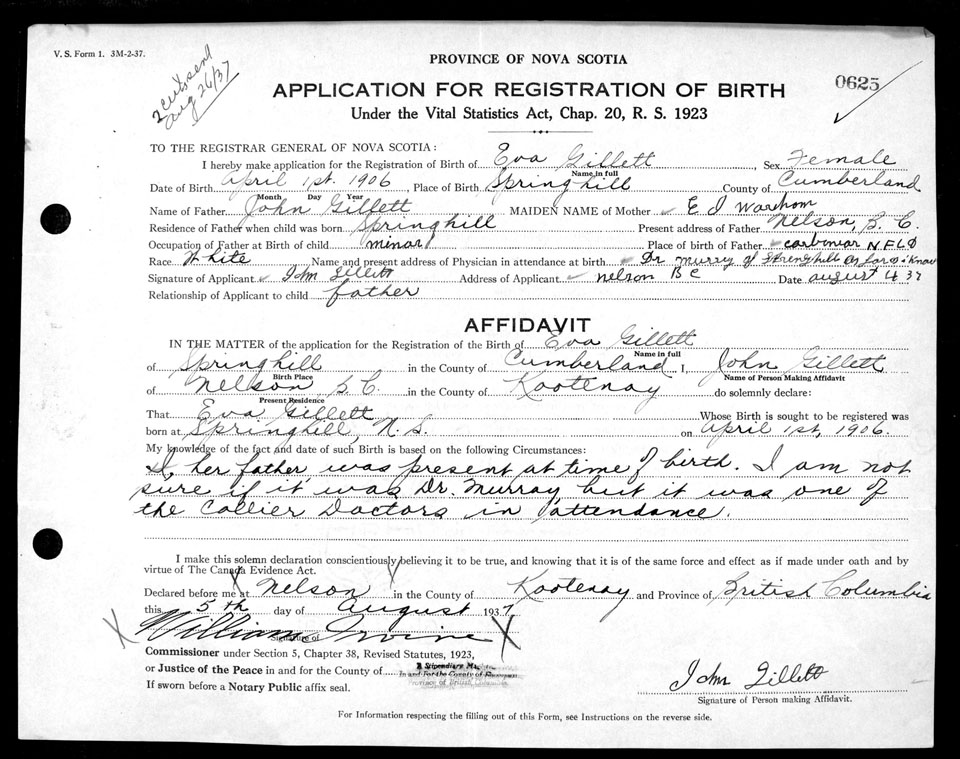 V. S. Form 1. 3M-2-37.
Aug 26/37
PROVINCE OF NOVA SCOTIA
0625
APPLICATION FOR REGISTRATION OF BIRTH
Under the Vital Statistics Act, Chap. 20, R. S. 1923
TO THE REGISTRAR GENERAL OF NOVA SCOTIA:
I hereby make application for the Registration of Birth of Eva Gillett Sex Female
Name in full
Date of Birth April 1st. 1906, Place of Birth Springhill County of Cumberland
Month Day Year
Name of Father John Gillett MAIDEN NAME of Mother E J Warehom
Residence of Father when child was born Springhill Present address of Father Nelson, B. C.
Occupation of Father at Birth of child minar Place of birth of Father carbinar N.F.L.D
Race White Name and present address of Physician in attendance at birth Dr Murrey of Strenghill as far as i know
Signature of Applicant John Gillett Address of Applicant nelson B C Date august 4 37
Relationship of Applicant to child father
AFFIDAVIT
IN THE MATTER of the application for the Registration of the Birth of Eva Gillett
Name in full
of Springhill in the County of Cumberland I, John Gillett
Birth Place Name of Person Making Affidavit
of Nelson, B C. in the County of Kootenay do solemnly declare:
Present Residence
That Eva Gillett Whose Birth is sought to be registered was
born at Springhill, N. S. on April 1st, 1906.
My knowledge of the fact and date of such Birth is based on the following Circumstances:
I, her father, was present at time of birth. I am not
sure if it was Dr. Murray, but it was one of
the Collier Doctors in attendance.
I make this solemn declaration conscientiously believing it to be true, and knowing that it is of the same force and effect as if made under oath and by
virtue of The Canada Evidence Act.
Declared before me at Nelson in the County of Kootenay and Province of British Columbia
this 5th day of August 1937
William Irvine
Signature of
Commissioner under Section 5, Chapter 38, Revised Statutes, 1923,
or Justice of the Peace in and for the County of A Stipendiary
In and For the County of
Province of British Columbia
If sworn before a Notary Public affix seal.
John Gillett
Signature of Person making Affidavit.
For Information respecting the filling out of this Form, see Instructions on the reverse side.